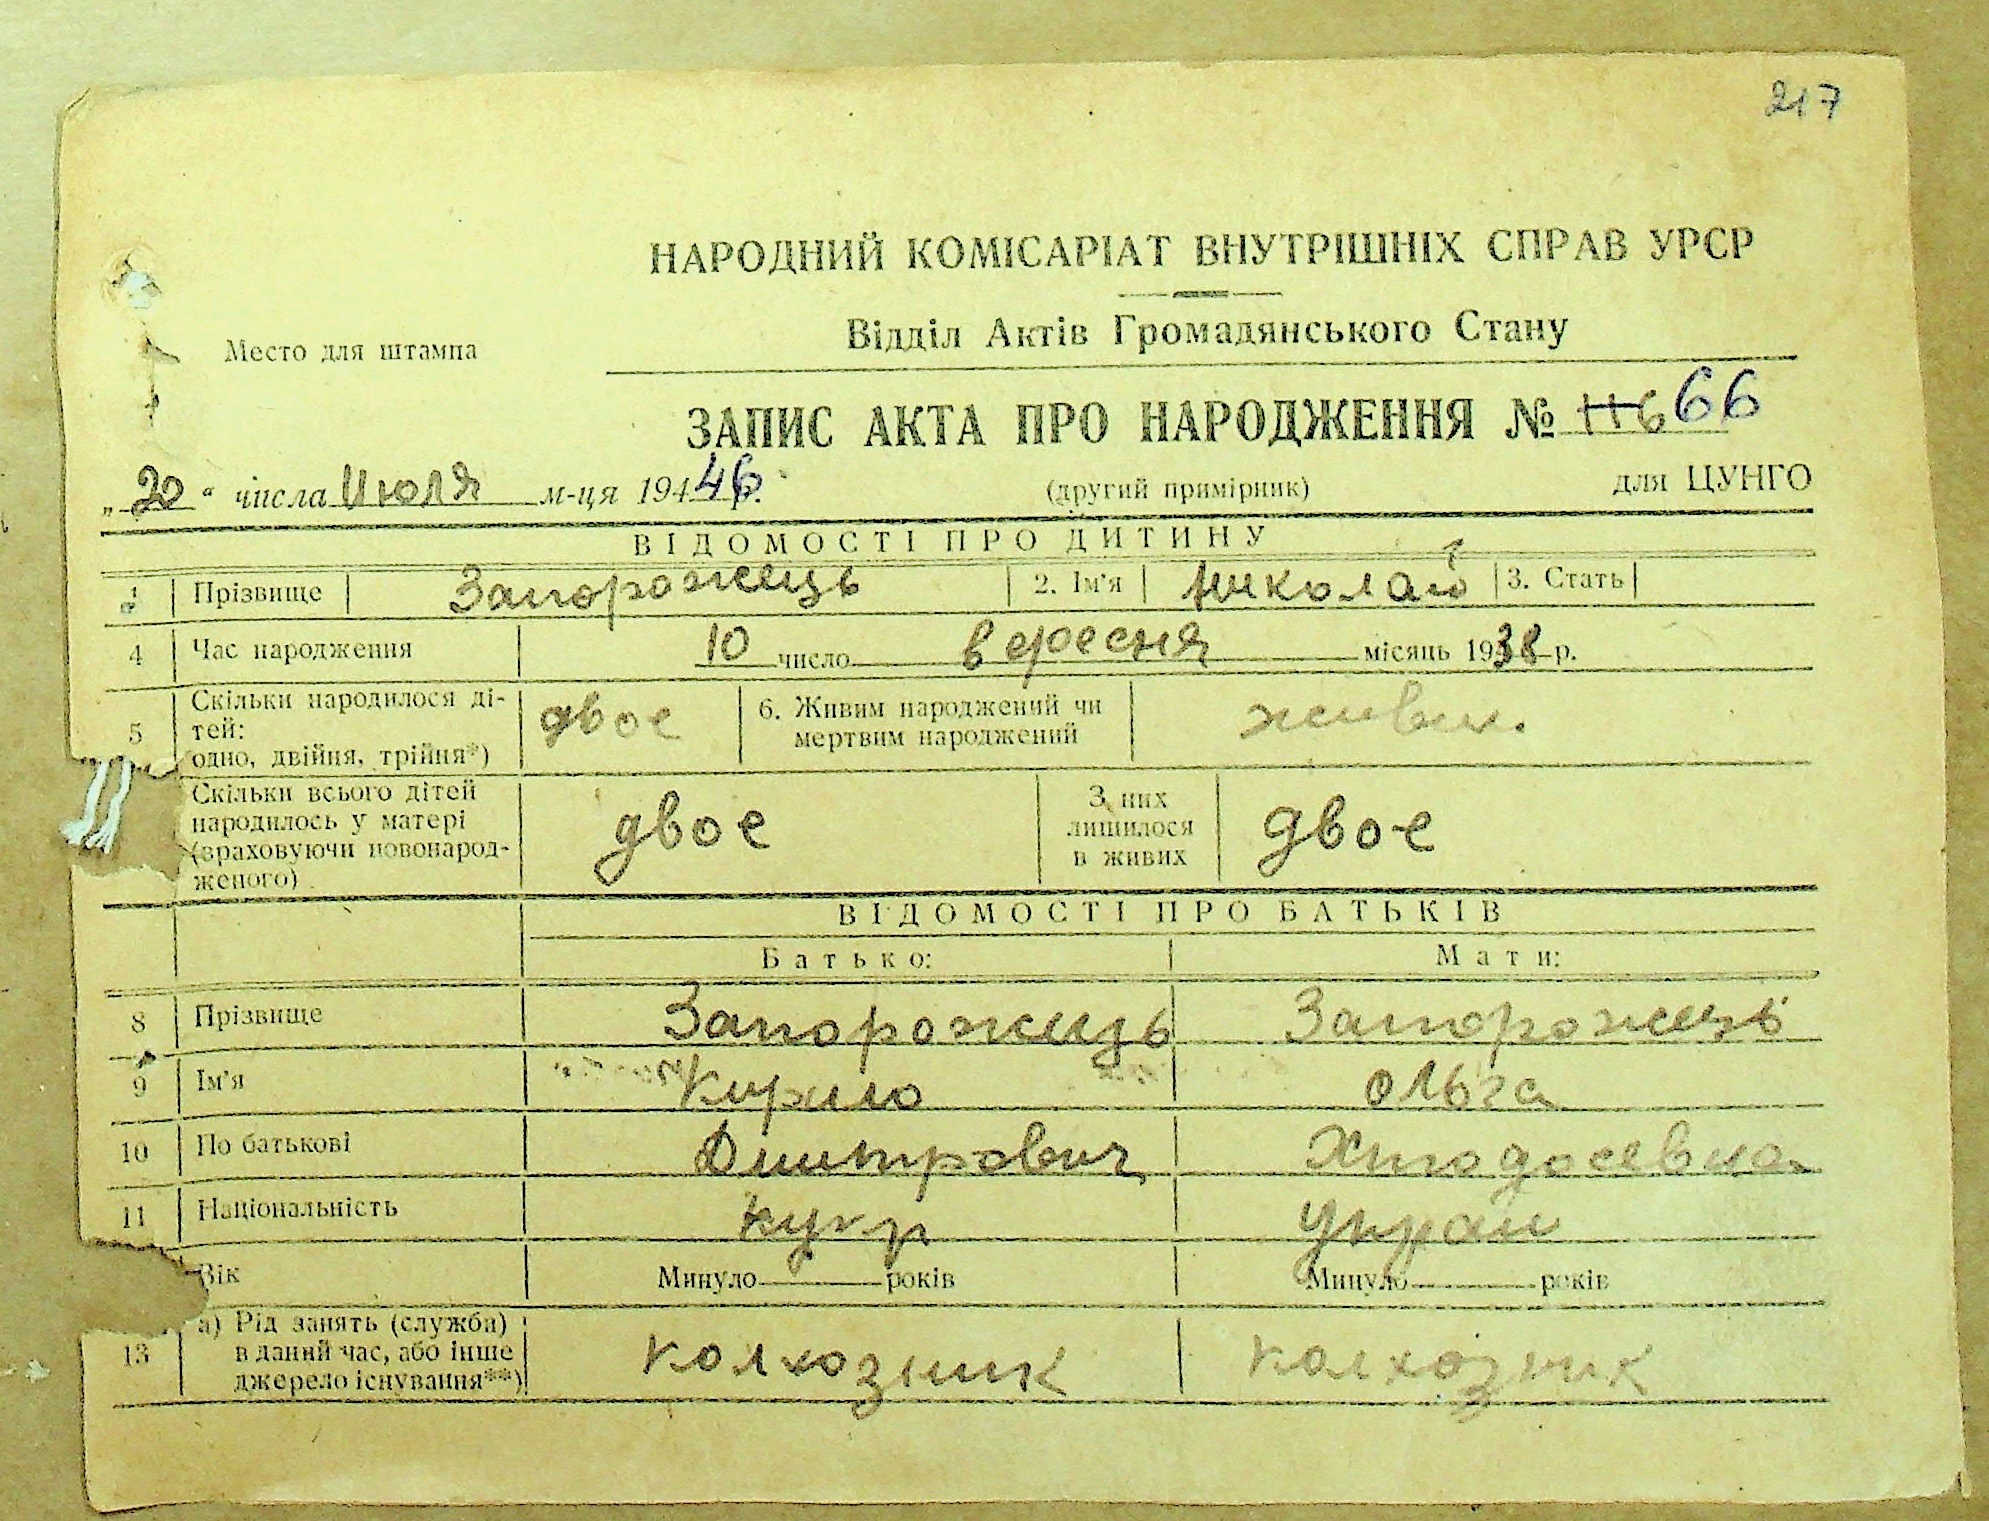 217
НАРОДНИЙ КОМІСАРІАТ ВНУТРІШНІХ СПРАВ УРСР
Відділ Актів Громадянського Стану
Место для штампа
ЗАПИС АКТА ПРО НАРОДЖЕННЯ № 116 66
„20“ числа Июля м-ця 194 46 р. (другий примірник) для ЦУНГО
ВІДОМОСТІ ПРО ДИТИНУ
1 Прізвище Запорожець 2. Ім'я Николай 3. Стать
4 Час народження 10 число вересня місяць 1938 р.
5 Скільки народилося ді-
тей:
одно, двійня, трійня*) двое 6. Живим народжений чи
мертвим народжений живи.
Скільки всього дітей
народилось у матері
(враховуючи новонарод-
женого) двое З них
лишилося
в живих двое
ВІДОМОСТІ ПРО БАТЬКІВ
Батько: Мати:
8 Прізвище Запорожець Запорожець
9 Ім'я Кирило Ольга
10 По батькові Дмитрович Хтодосевна
11 Національність укр украи
Вік Минуло років Минуло років
13 а) Рід занять (служба)
в даний час, або інше
джерело існування**) колхозник колхозник